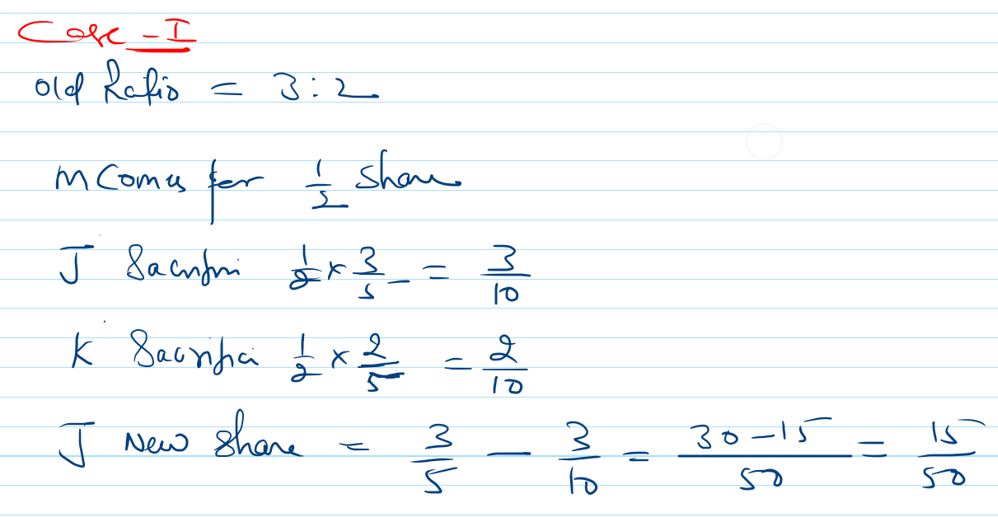 Case - I
Old Ratio = 3 : 2
M Comes for 1/2 Share
J Sacrifice 1/2 × 3/5 = 3/10
K Sacrifice 1/2 × 2/5 = 2/10
J New Share = 3/5 - 3/10 = 30-15/50 = 15/50